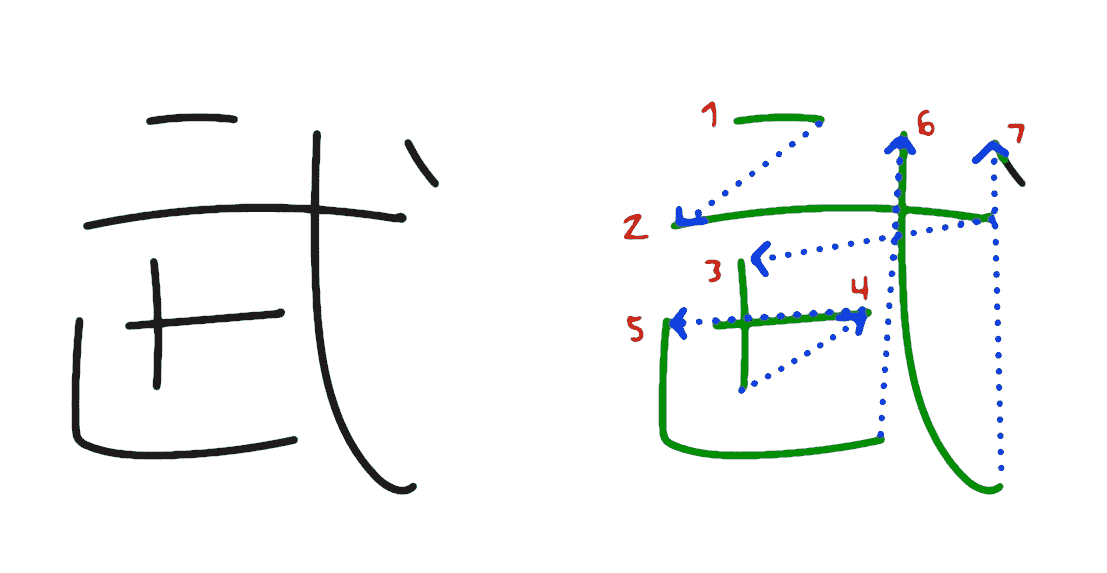 武
武
1
2
3
4
5
6
7